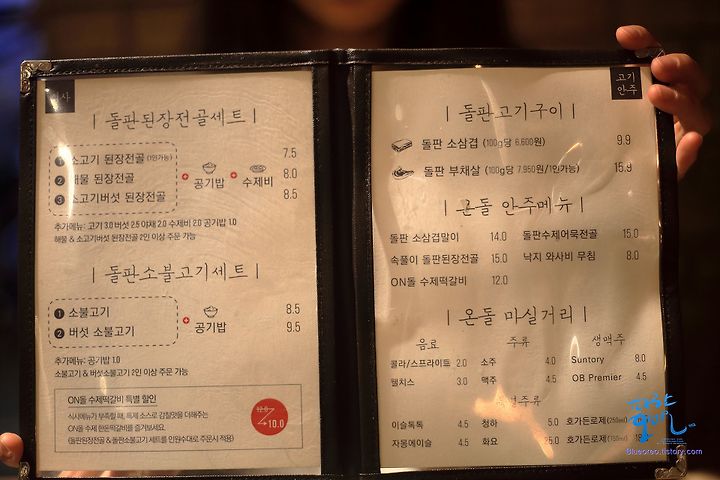 식사
돌판된장전골세트
1 소고기 된장전골 (1인가능) 7.5
2 해물 된장전골 8.0
3 소고기버섯 된장전골 8.5
+ 공기밥 + 수제비
추가메뉴: 고기 3.0 버섯 2.5 야채 2.0 수제비 2.0 공기밥 1.0
해물 & 소고기버섯 된장전골 2인 이상 주문 가능
돌판소불고기세트
1 소불고기 8.5
2 버섯 소불고기 9.5
+ 공기밥
추가메뉴: 공기밥 1.0
소불고기 & 버섯소불고기 2인 이상 주문 가능
ON돌 수제떡갈비 특별 할인
식사메뉴가 부족할 때, 특제 소스로 감칠맛을 더해주는
ON돌 수제 한돈떡갈비를 즐겨보세요.
(돌판된장전골 & 돌판소불고기 세트를 인원수대로 주문시 적용)
12.0
10.0
고기
안주
돌판고기구이
돌판 소삼겹 (100g당 6,600원) 9.9
돌판 부채살 (100g당 7,950원/1인가능) 15.9
온돌 안주메뉴
돌판 소삼겹말이 14.0 돌판수제어묵전골 15.0
속풀이 돌판된장전골 15.0 낙지 와사비 무침 8.0
ON돌 수제떡갈비 12.0
온돌 마실거리
음료 주류 생맥주
콜라/스프라이트 2.0 소주 4.0 Suntory 8.0
웰치스 3.0 맥주 4.5 OB Premier 4.5
주류
이슬톡톡 4.5 청하 5.0 호가든로제(250ml)
자몽에이슬 4.5 화요 5.0 호가든로제(750ml)
Blueoreo.tistory.com